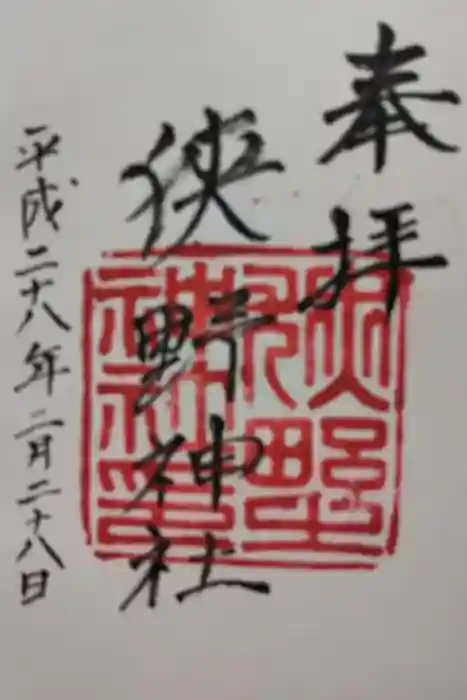 奉拝
狭野神社
平成二十八年二月二十八日
狹野
神社印